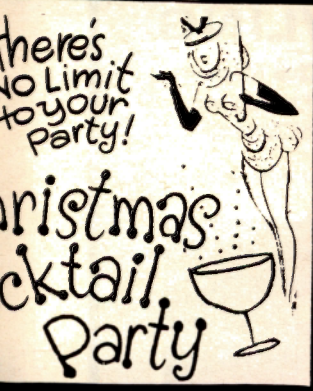 here's
No Limit
to your
Party!
ristmas
cktail
Party